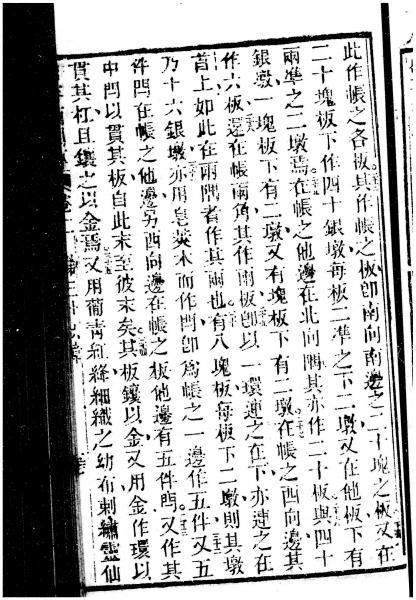 此作帳之各板其作帳之板卽南向南邊之二十塊之板又在
二十塊板下作四十銀墩每板二準之下二墩又在他板下有
兩準之二墩焉在帳之他邊在北向隅其亦作二十板與四十
銀墩一塊板下有二墩又有塊板下有二墩在帳之西向邊其
作六板還在帳兩角其作兩板卽以一環連之在下亦連之在
首上如此在兩隅者作其兩也有八塊板每板下二墩則其墩
乃十六銀墩亦用皂莢木而作閂卽爲帳之一邊作五件又五
件閂在帳之他邊另西向邊在帳之板他邊有五件閂又作其
中閂以貫其板自此末至彼末矣其板鑲以金又用金作環以
貫其杠且鑲之以金焉又用葡青紅絳細織之幼布刺繡靈仙